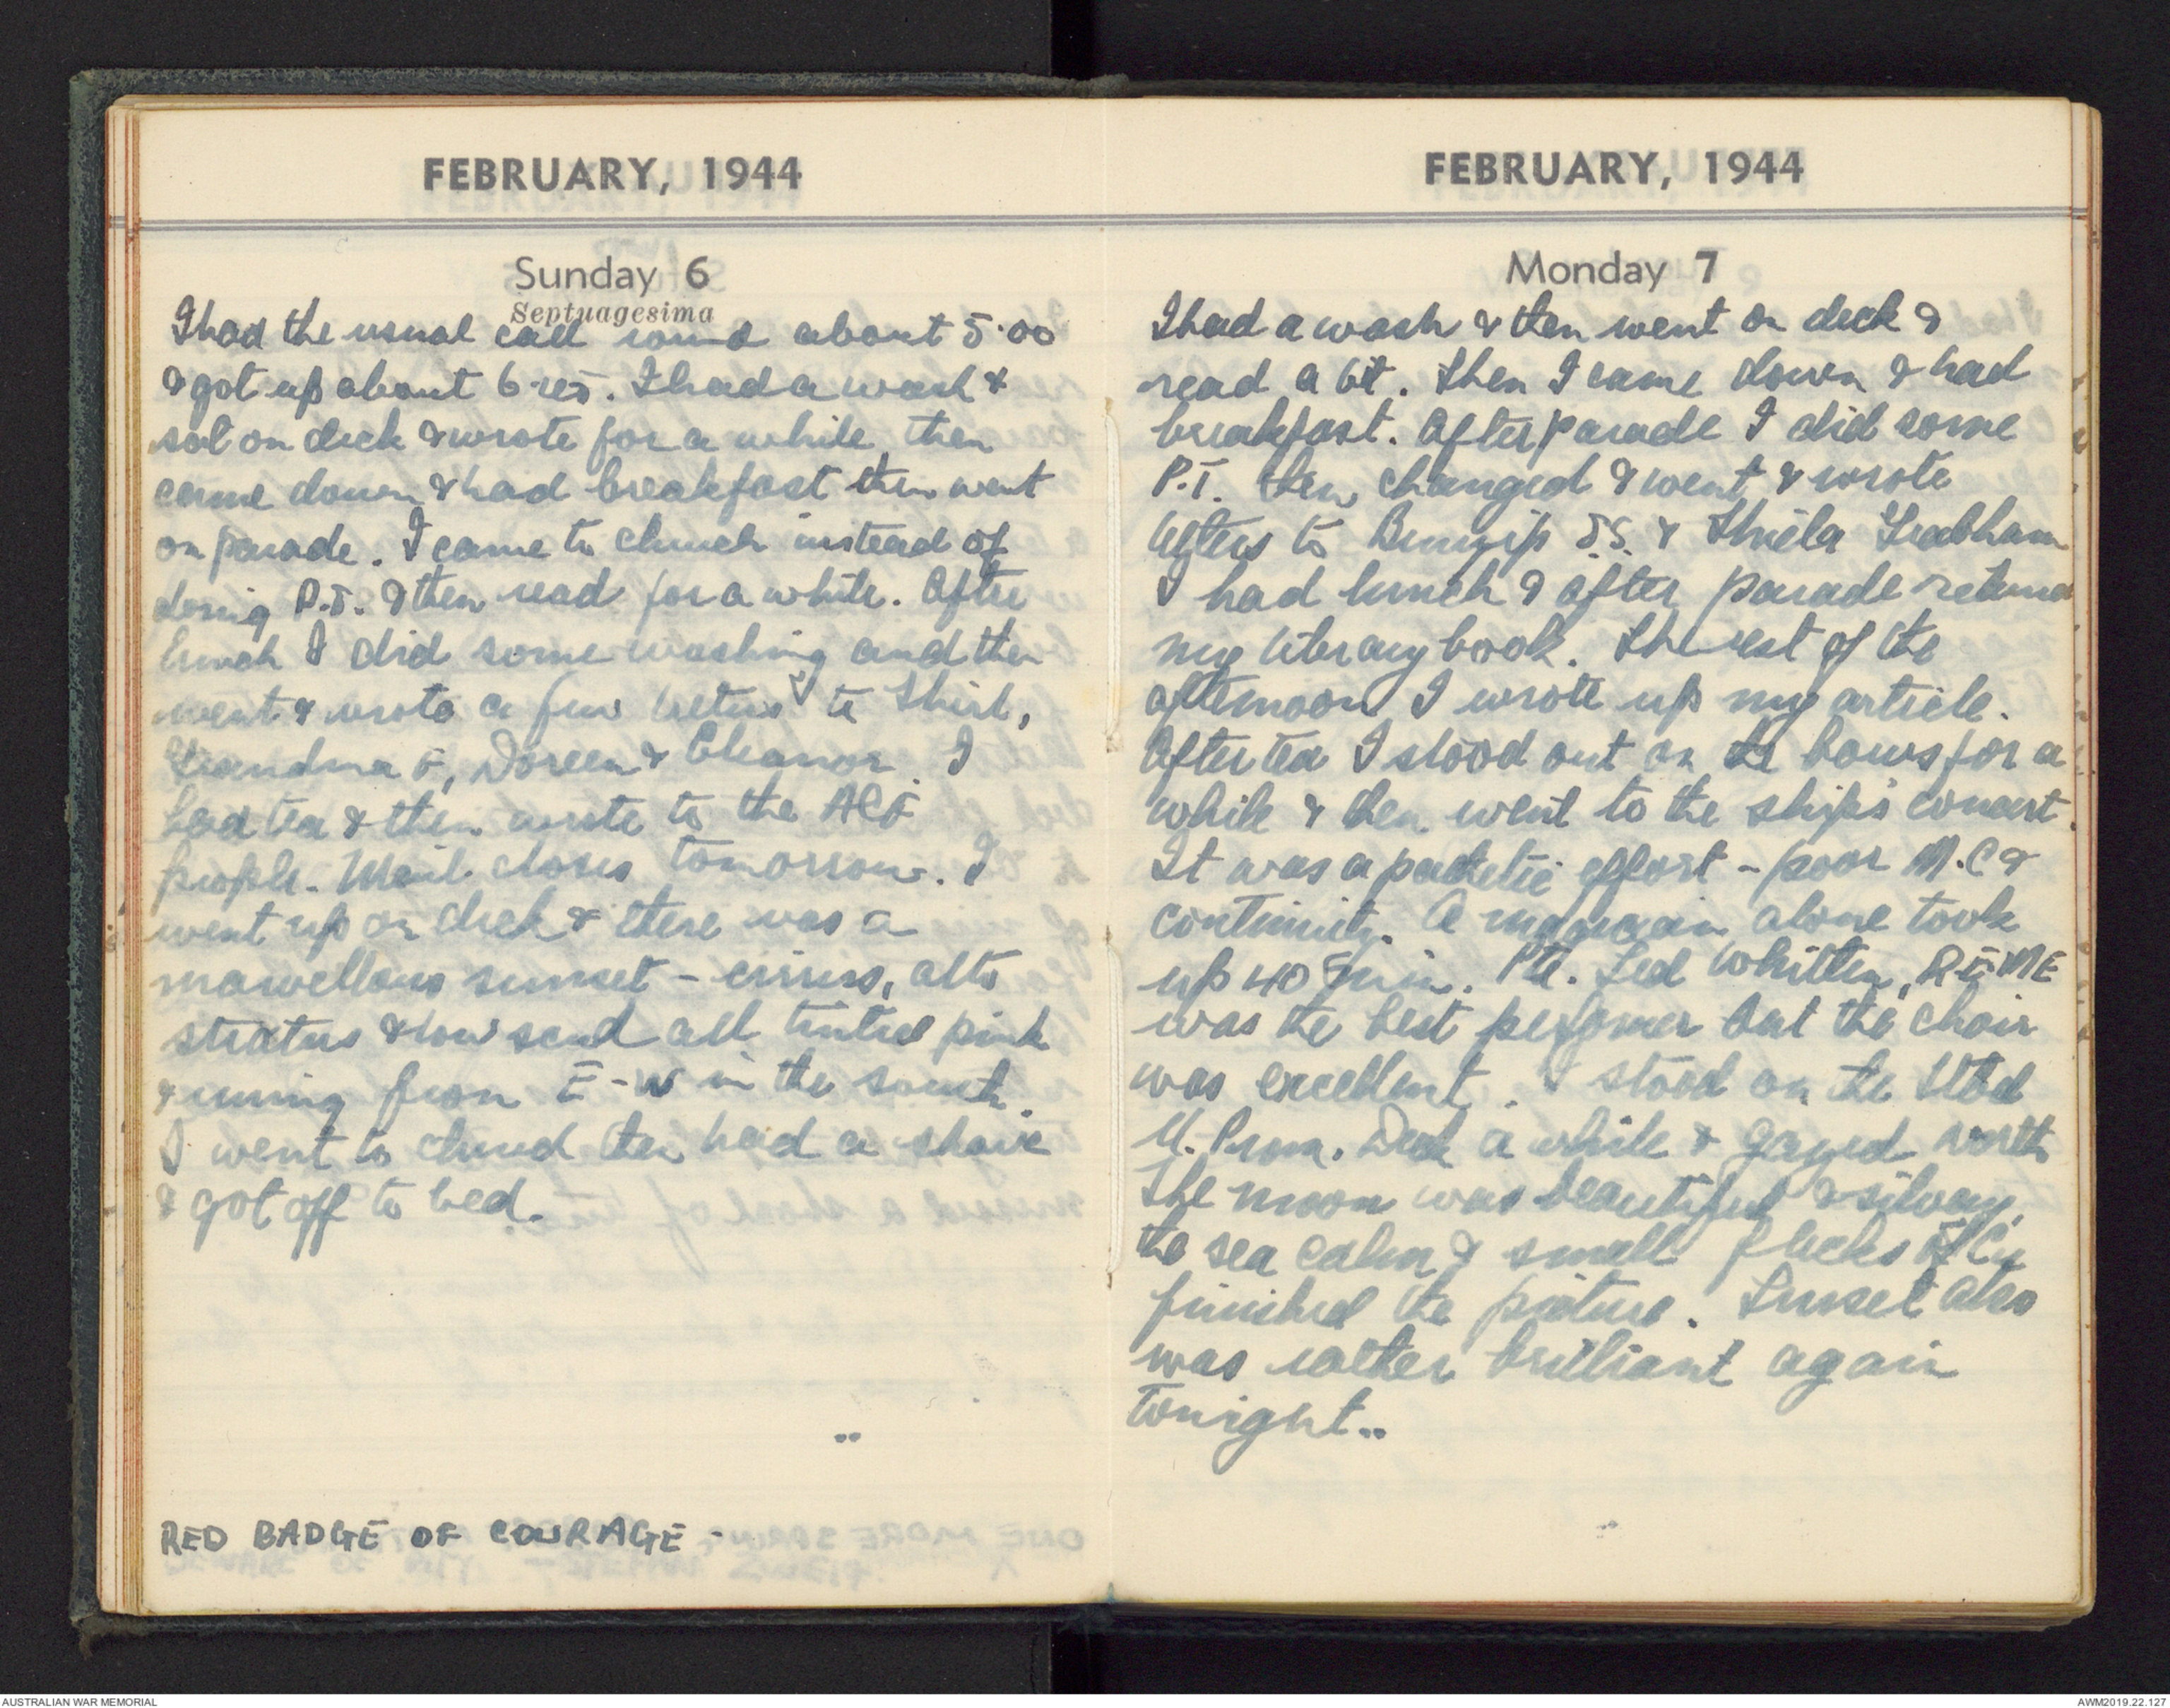 FEBRUARY, 1944
Sunday 6
Septuagesima
I had the usual call round about 5.00
& got up about 6.25. I had a wash &
sat on deck & wrote for a while then
came down & had breakfast then went
on parade. I came to church instead of
doing P.T. & then read for a while. After
lunch I did some washing and then
went & wrote a few letters to Shirl,
Grandma F, Doreen & Eleanor. I
had tea & then wrote to the ACF
people. Mail closes tomorrow. I
went up on deck & there was a
marvellous sunset - cirrus, alto
stratus & low scud all tinted pink
& running from E-W in the south.
I went to church then had a shave
& got off to bed.
..
RED BADGE OF COURAGE -
FEBRUARY, 1944
Monday 7
I had a wash & then went on deck &
read a bit. Then I came down & had
breakfast. After parade I did some
P.T. then changed & went & wrote
letters to Bunyip S.S. &
I had lunch & after parade returned
my library book. The rest of the
afternoon I wrote up my article.
After tea I stood out on the bows for a
while & then went to the ship's concert.
It was a pathetic effort - poor M.C &
continuity. A magician alone took
up 40 min. Pte. Ted Whitten, REME
was the best perfomer but the choir
was excellent. I stood on the Stbd
U. Prom. Deck a while & gazed north
The moon was beautiful & silvery,
the sea calm & small flecks of Cu
finished the picture. Sunset also
was rather brilliant again
tonight..
AUSTRALIAN WAR MEMORIAL
AWM2019.22.127